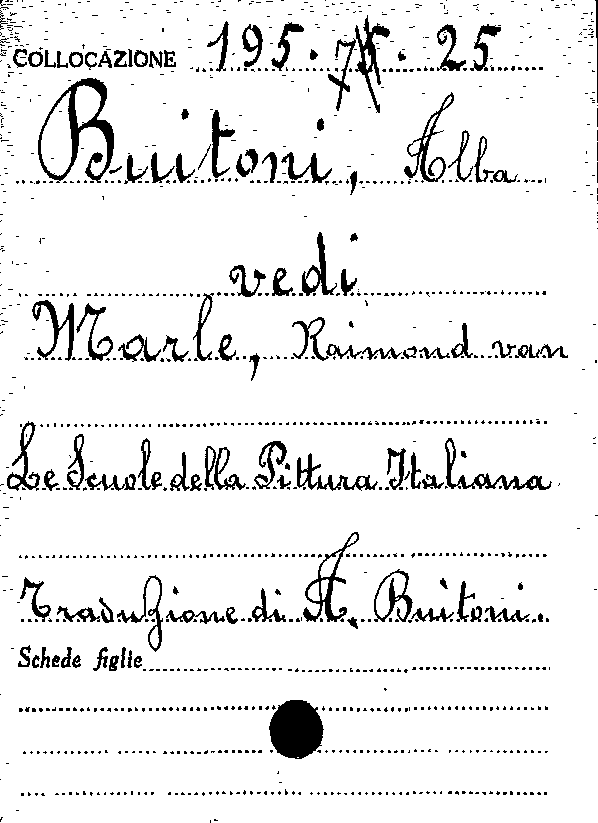 COLLOCAZIONE 195. 7 . 25
Buitoni, Alba
vedi
Marle, Raimond van
Le Scuole della Pittura Italiana
Traduzione di A. Buitoni.
Schede figlie